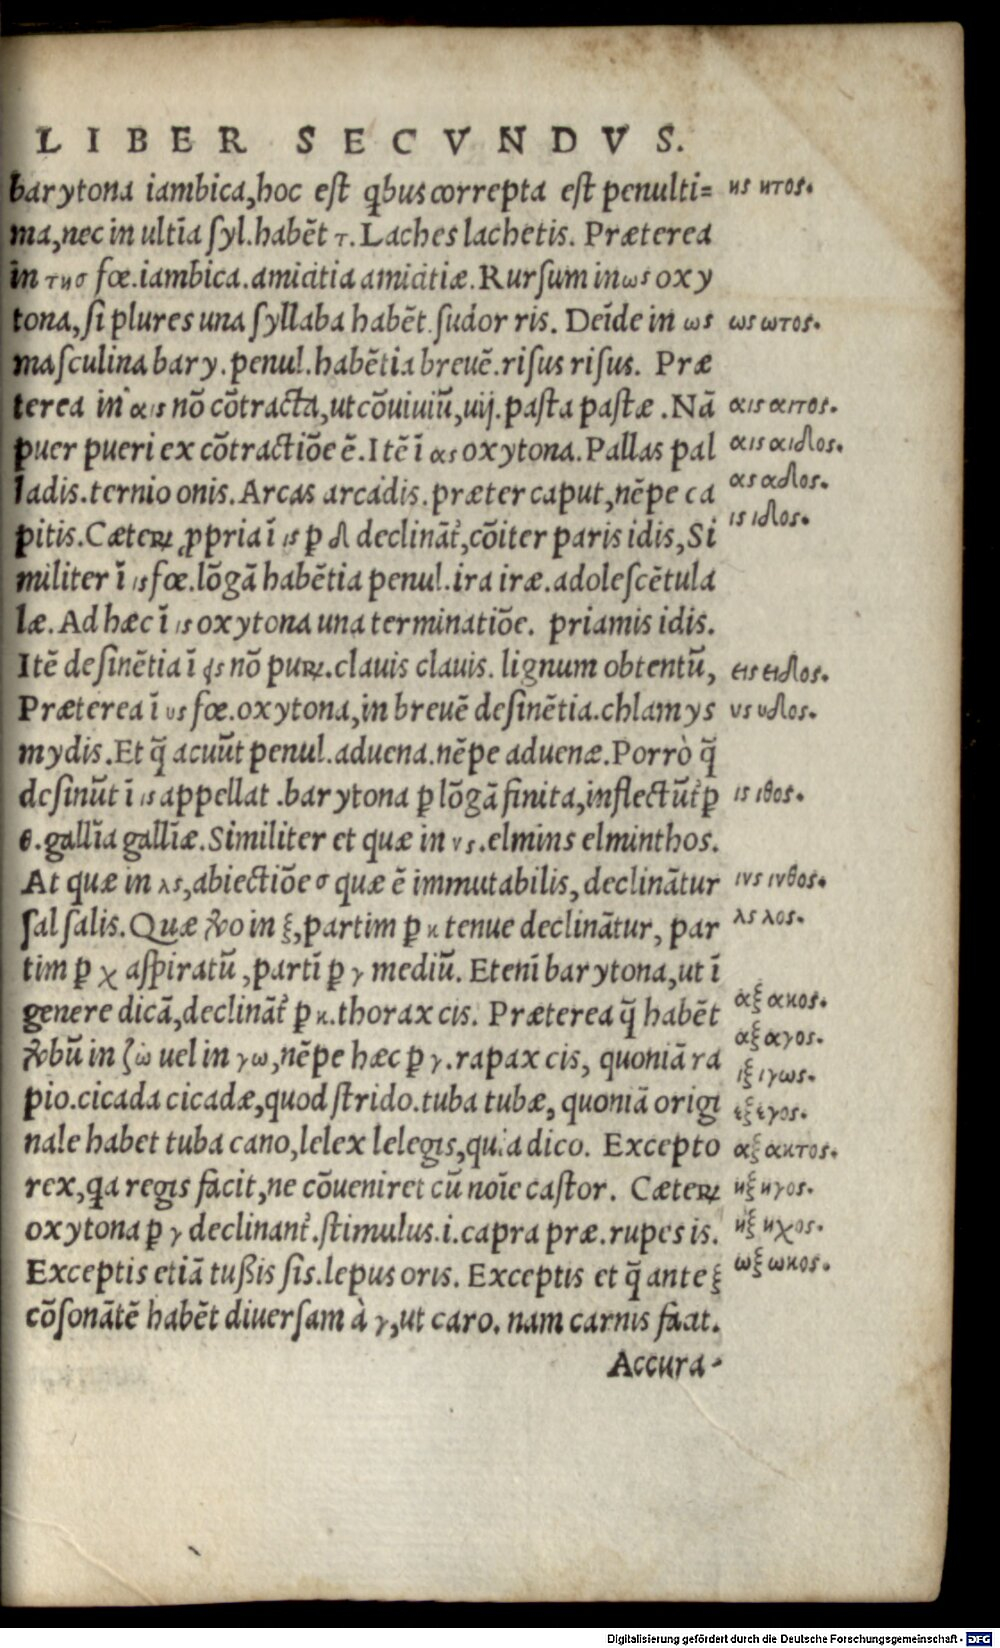 LIBER SECVNDVS.
barytona iambica, hoc est qbus correpta est penulti=
ma, nec in ultīa syl. habēt τ. Laches lachetis. Præterea
in τησ fœ. iambica. amicitia amicitiæ. Rursum in ως oxy
tona, si plures una syllaba habēt. sudor ris. Deīde in ως
masculina bary. penul. habētia breuē. risus risus. Præ
terea in αις nō cōtracta, ut cōuiuiū, uij. pasta pastæ. Nā
puer pueri ex cōtractiōe ē. Itē ī ας oxytona. Pallas pal
ladis. ternio onis. Arcas arcadis. præter caput, nēpe ca
pitis. Cæteꝝ ꝓpria ī ις ꝑ δ declināt᷑, cōiter paris idis, Si
militer ī ις fœ. lōgā habētia penul. ira iræ. adolescētula
læ. Ad hæc ī ις oxytona una terminatiōe. priamis idis.
Itē desinētia ī εις nō puꝝ. clauis clauis. lignum obtentū,
Præterea ī υς fœ. oxytona, in breuē desinētia. chlamys
mydis. Et q̄ acuūt penul. aduena. nēpe aduenæ. Porrò q̄
desinūt ī ις appellat. barytona ꝑ lōgā finita, inflectūt᷑ ꝑ
θ. gallīa gallīæ. Similiter et quæ in νς. elmins elminthos.
At quæ in λς, abiectiōe σ quæ ē immutabilis, declinātur
sal salis. Quæ ꝟo in ξ, partim ꝑ κ tenue declinātur, par
tim ꝑ χ aspiratū, partī ꝑ γ mediū. Etenī barytona, ut ī
genere dicā, declināt᷑ ꝑ κ. thorax cis. Præterea q̄ habēt
ꝟbū in ζω uel in γω, nēpe hæc ꝑ γ. rapax cis, quoniā ra
pio. cicada cicadæ, quod strido. tuba tubæ, quoniā origi
nale habet tuba cano, lelex lelegis, quia dico. Excepto
rex, qa regis facit, ne cōueniret cū noīe castor. Cæteꝝ
oxytona ꝑ γ declinant᷑. stimulus. i. capra præ. rupes is.
Exceptis etiā tußis sis. lepus oris. Exceptis et q̄ ante ξ
cōsonātē habēt diuersam à γ, ut caro. nam carnis facit.
Accura-
ης ητος.
ως ωτος.
αις αιτος.
αις αιδος.
ας αδος.
ις ιδος.
εις ειδος.
υς υδος.
ις ιθος.
ινς ινθος.
λς λος.
αξ ακος.
αξ αγος.
ιξ ιγως.
εξ εγος.
αξ ακτος.
ηξ ηγος.
ηξ ηχος.
ωξ ωκος.
Digitalisierung gefördert durch die Deutsche Forschungsgemeinschaft - DFG